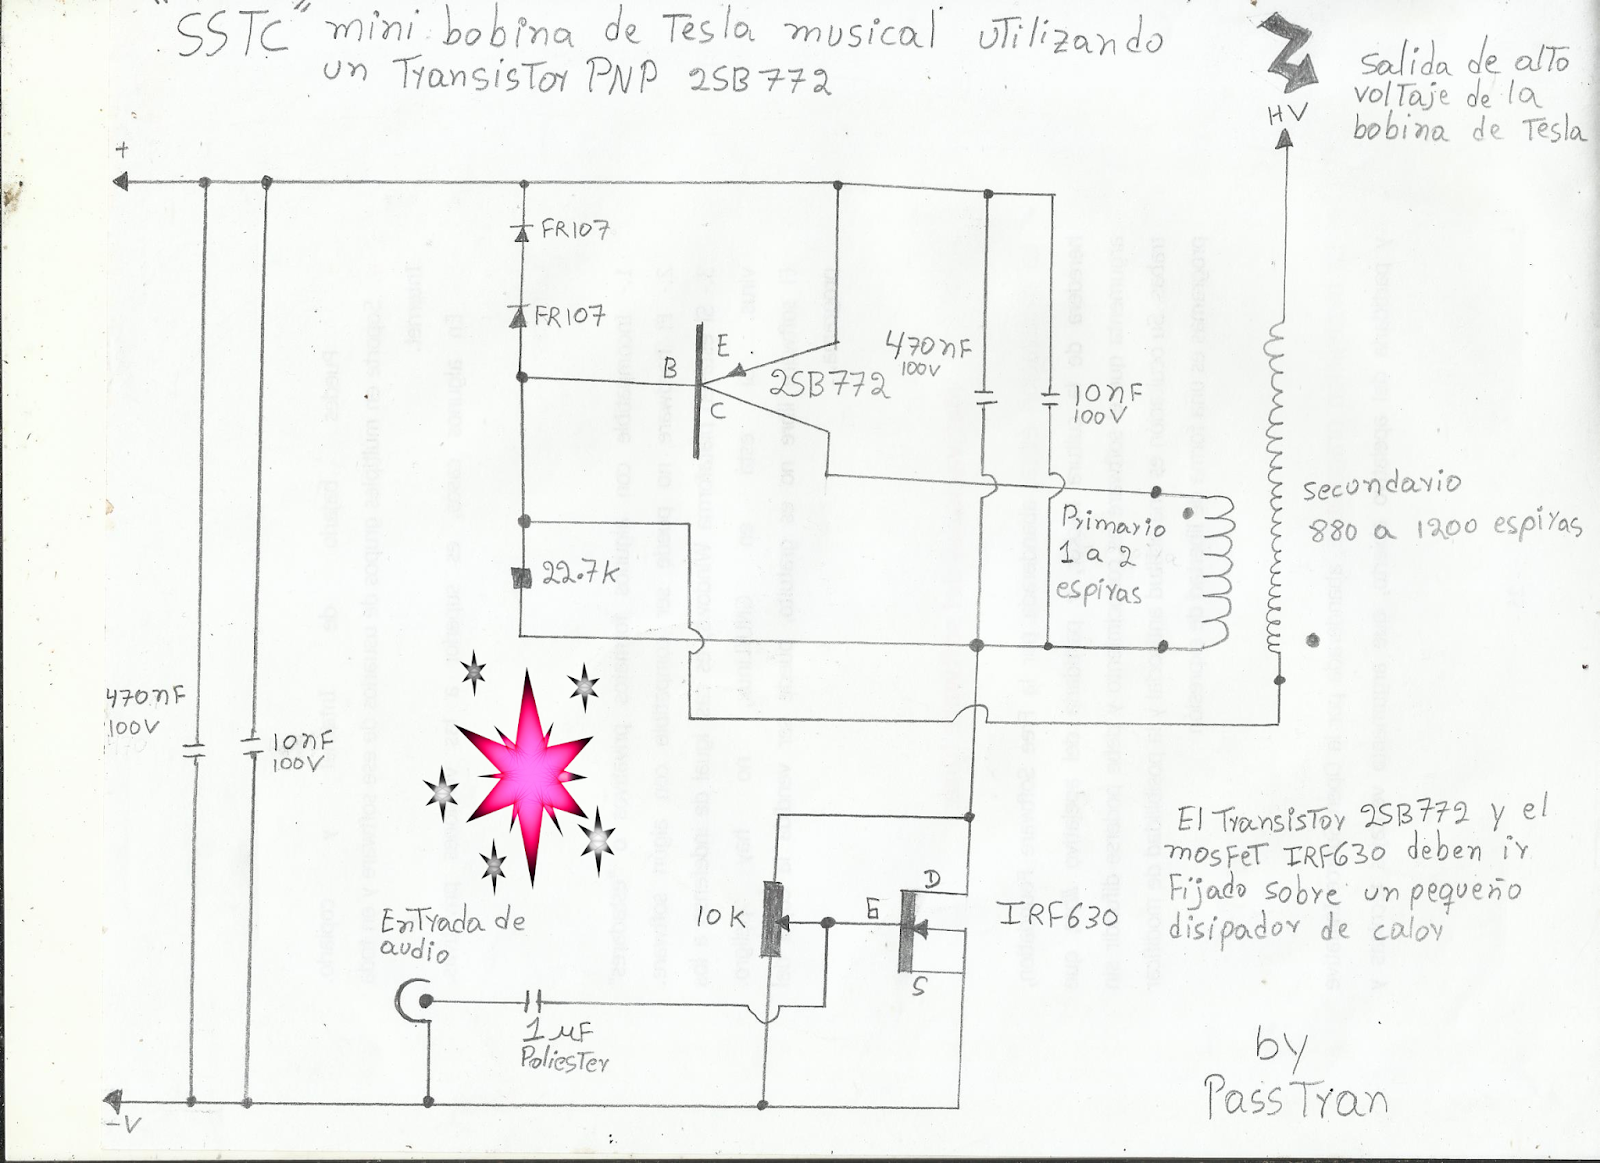 "SSTC" mini bobina de Tesla musical utilizando
un Transistor PNP 2SB772
salida de alto
voltaje de la
bobina de Tesla
HV
+
FR107
FR107
B
E
C
2SB772
470nF
100V
10nF
100V
Primario
1 a 2
espiras
secundario
880 a 1200 espiras
22.7K
470nF
100V
10nF
100V
El Transistor 2SB772 y el
mosfet IRF630 deben ir
Fijado sobre un pequeño
disipador de calor
Entrada de
audio
10K
G
D
S
IRF630
1 µF
Poliester
-V
by
PassTran